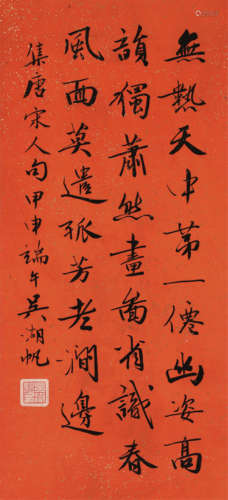 無熱天中第一僊幽姿高
韻獨蕭然畫圖省識春
風面莫遣孤芳老澗邊
集唐宋人句甲申端午吳湖帆